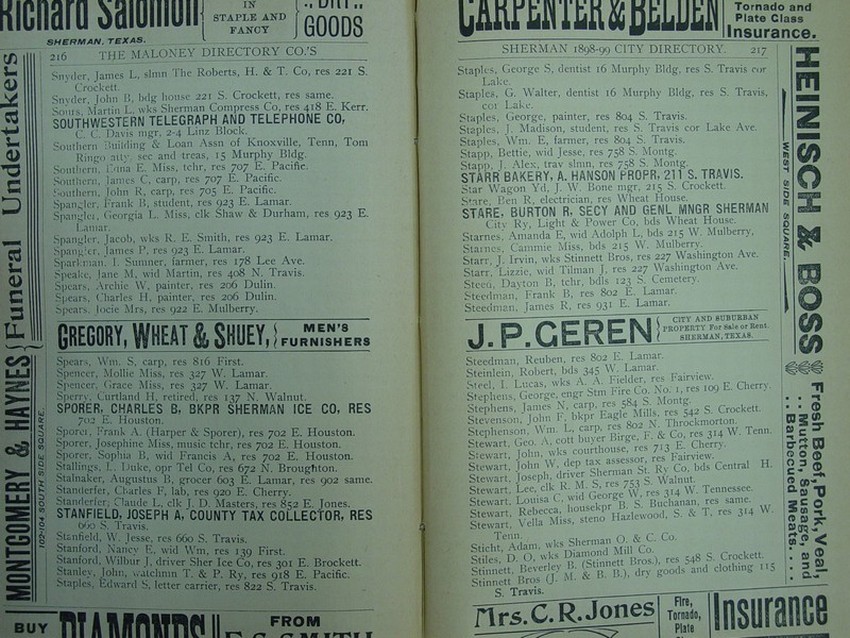 Richard Salomon
IN
STAPLE AND
FANCY
DRY
GOODS
SHERMAN, TEXAS.
216 THE MALONEY DIRECTORY CO.'S
Snyder, James L, slmn The Roberts, H. & T. Co, res 221 S.
Crockett.
Snyder, John B, bdg house 221 S. Crockett, res same.
Sours, Martin L, wks Sherman Compress Co, res 418 E. Kerr.
SOUTHWESTERN TELEGRAPH AND TELEPHONE CO,
C. C. Davis mgr, 2-4 Linz Block.
Southern Building & Loan Assn of Knoxville, Tenn, Tom
Ringo atty, sec and treas, 15 Murphy Bldg.
Southern, Edna E. Miss, tchr, res 707 E. Pacific.
Southern, James C, carp, res 707 E. Pacific.
Southern, John R, carp, res 705 E. Pacific.
Spangler, Frank B, student, res 923 E. Lamar.
Spangler, Georgia L. Miss, clk Shaw & Durham, res 923 E.
Lamar.
Spangler, Jacob, wks R. E. Smith, res 923 E. Lamar.
Spangler, James P, res 923 E. Lamar.
Sparkman, I. Sumner, farmer, res 178 Lee Ave.
Speake, Jane M, wid Martin, res 408 N. Travis.
Spears, Archie W, painter, res 206 Dulin.
Spears, Charles H, painter, res 206 Dulin.
Spears, Jocie Mrs, res 922 E. Mulberry.
GREGORY, WHEAT & SHUEY,
MEN'S
FURNISHERS
Spears, Wm. S, carp, res 816 First.
Spencer, Mollie Miss, res 327 W. Lamar.
Spencer, Grace Miss, res 327 W. Lamar.
Sperry, Curtland H, retired, res 137 N. Walnut.
SPORER, CHARLES B, BKPR SHERMAN ICE CO, RES
702 E. Houston.
Sporer, Frank A. (Harper & Sporer), res 702 E. Houston.
Sporer, Josephine Miss, music tchr, res 702 E. Houston.
Sporer, Sophia B, wid Francis A, res 702 E. Houston.
Stallings, L. Duke, opr Tel Co, res 672 N. Broughton.
Stalnaker, Augustus B, grocer 603 E. Lamar, res 902 same.
Standefer, Charles F, lab, res 920 E. Cherry.
Standefer, Claude L, clk J. D. Masters, res 852 E. Jones.
STANFIELD, JOSEPH A, COUNTY TAX COLLECTOR, RES
660 S. Travis.
Stanfield, W. Jesse, res 660 S. Travis.
Stanford, Nancy E, wid Wm, res 139 First.
Stanford, Wilbur J, driver Sher Ice Co, res 301 E. Brockett.
Stanley, John, watchmn T. & P. Ry, res 918 E. Pacific.
Staples, Edward S, letter carrier, res 822 S. Travis.
BUY DIAMONDS FROM
Funeral Undertakers
MONTGOMERY & HAYNES
102-104 SOUTH SIDE SQUARE.
CARPENTER & BELDEN
Tornado and
Plate Class
Insurance.
SHERMAN 1898-99 CITY DIRECTORY. 217
Staples, George S, dentist 16 Murphy Bldg, res S. Travis cor
Lake.
Staples, G. Walter, dentist 16 Murphy Bldg, res S. Travis,
cor Lake.
Staples, George, painter, res 804 S. Travis.
Staples, J. Madison, student, res S. Travis cor Lake Ave.
Staples, Wm. E, farmer, res 804 S. Travis.
Stapp, Bettie, wid Jesse, res 758 S. Montg.
Stapp, J. Alex, trav slmn, res 758 S. Montg.
STARR BAKERY, A. HANSON PROPR, 211 S. TRAVIS.
Star Wagon Yd, J. W. Bone mgr, 215 S. Crockett.
Stare, Ben R, electrician, res Wheat House.
STARE, BURTON R, SECY AND GENL MNGR SHERMAN
City Ry, Light & Power Co, bds Wheat House.
Starnes, Amanda E, wid Adolph L, bds 215 W. Mulberry,
Starnes, Cammie Miss, bds 215 W. Mulberry.
Starr, J. Irvin, wks Stinnett Bros, res 227 Washington Ave.
Starr, Lizzie, wid Tilman J, res 227 Washington Ave.
Steed, Dayton B, tchr, bds 123 S. Cemetery.
Steedman, Frank B, res 802 E. Lamar.
Steedman, James R, res 931 E. Lamar.
J. P. GEREN
CITY AND SUBURBAN
PROPERTY For Sale or Rent.
SHERMAN, TEXAS.
Steedman, Reuben, res 802 E. Lamar.
Steinlein, Robert, bds 345 W. Lamar.
Steel, I. Lucas, wks A. A. Fielder, res Fairview.
Stephens, George, engr Stm Fire Co. No. 1, res 109 E. Cherry.
Stephens, James N, carp, res 584 S. Montg.
Stevenson, John F, bkpr Eagle Mills, res 542 S. Crockett.
Stephenson, Wm. L, carp, res 802 N. Throckmorton.
Stewart, Geo. A, cott buyer Birge, F. & Co, res 314 W. Tenn.
Stewart, John, wks courthouse, res 713 E. Cherry.
Stewart, John W, dep tax assessor, res Fairview.
Stewart, Joseph, driver Sherman St. Ry Co, bds Central H.
Stewart, Lee, clk R. M. S, res 753 S. Walnut.
Stewart, Louisa C, wid George W, res 314 W. Tennessee.
Stewart, Rebecca, housekpr B. S. Buchanan, res same.
Stewart, Vella Miss, steno Hazlewood, S. & T, res 314 W.
Tenn.
Sticht, Adam, wks Sherman O. & C. Co.
Stiles, D. O, wks Diamond Mill Co.
Stinnett, Beverley B. (Stinnett Bros.), res 548 S. Crockett.
Stinnett Bros (J. M. & B. B.), dry goods and clothing 115
S. Travis.
Mrs. C. R. Jones
Fire,
Tornado,
Plate
Insurance
HEINISCH & BOSS
WEST SIDE SQUARE.
Fresh Beef, Pork, Veal,
. . Mutton, Sausage, and
. . Barbecued Meats. . . .